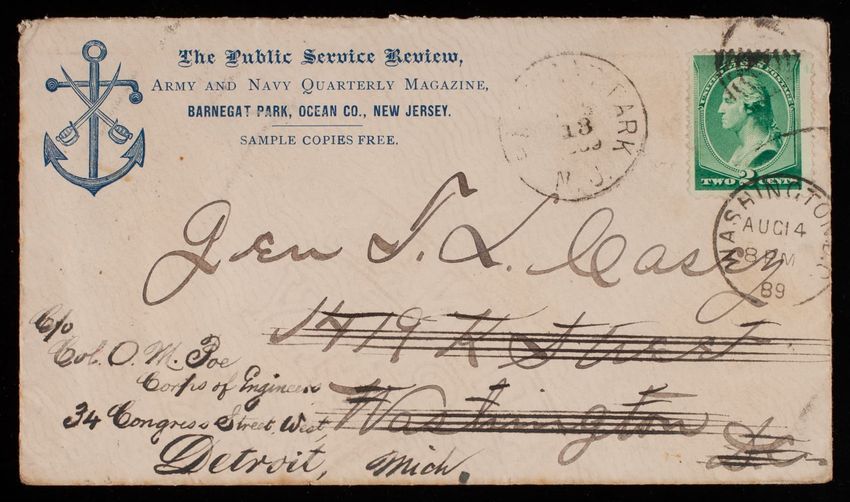 The Public Service Review,
ARMY AND NAVY QUARTERLY MAGAZINE,
BARNEGAT PARK, OCEAN CO., NEW JERSEY.
SAMPLE COPIES FREE.
PARK
13
N. J.
TWO 2 CENTS
WASHINGTON, D.C.
AUG 14
8 PM
89
Gen T. L. Casey
1419 K Street
Washington
D.C.
C/o
Col. O. M. Poe
Corps of Engineers
34 Congress Street West,
Detroit, Mich.